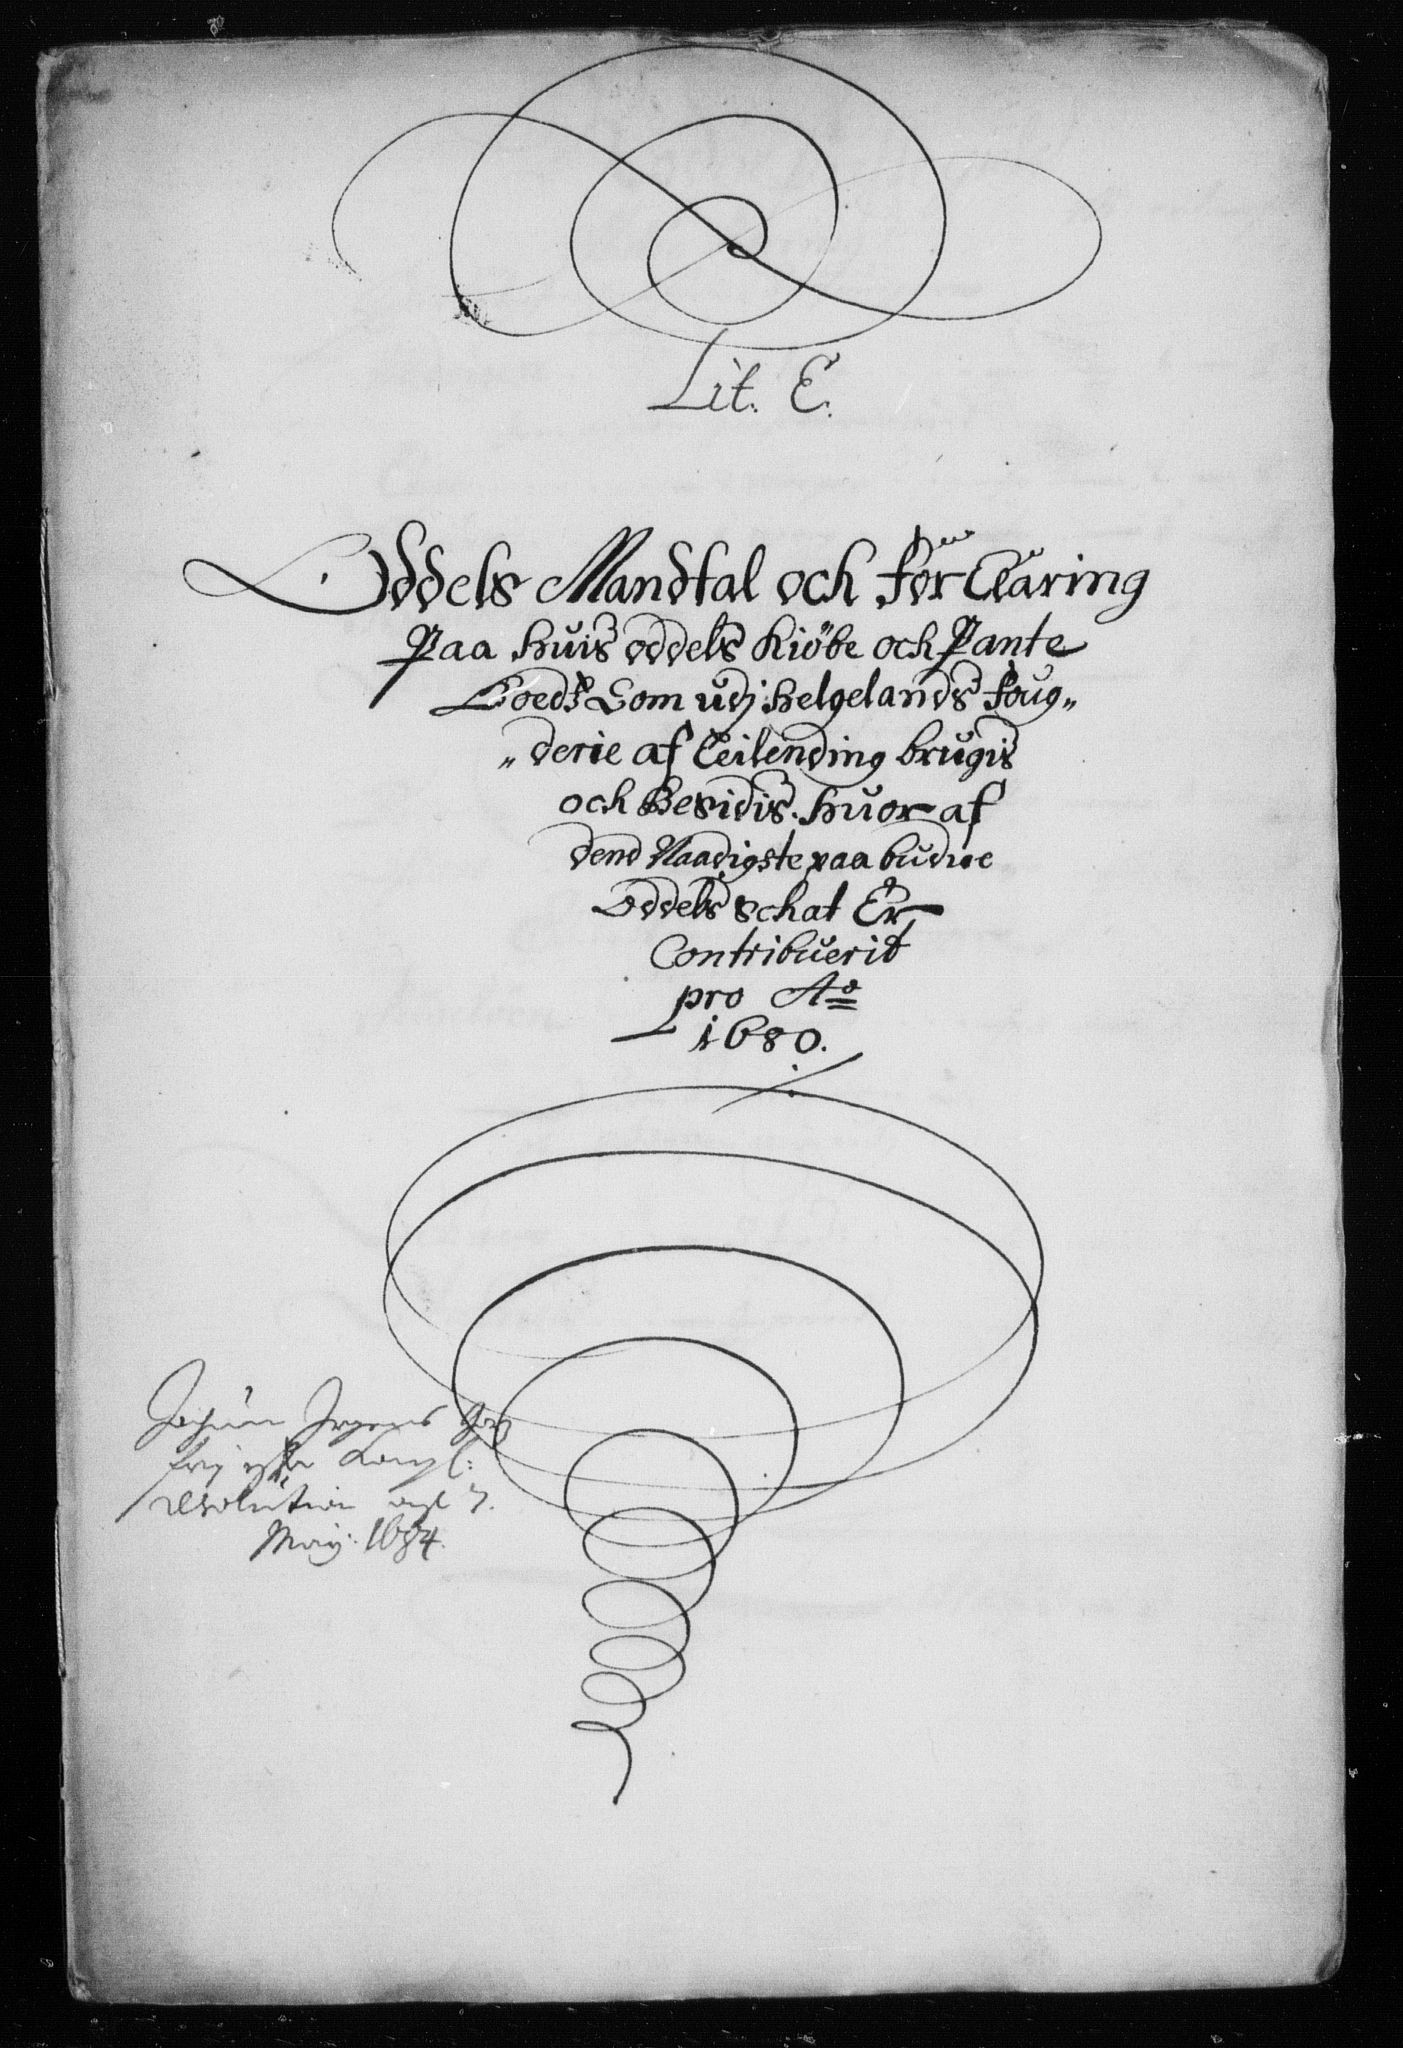 Lit. E.
Oddels Mandtal och forClaring
Paa huis oddels Kiöbe och Pante
Goeds Som udj Helgelands foug„
„derie af Leilending brugis
och Besidis. huor af
dend Naadigste paa budne
Oddels schat Er
Contribuerit
pro Ao
1680.
Jochum Irgens
frj Kongl:
resolution 7.
Maij 1684.